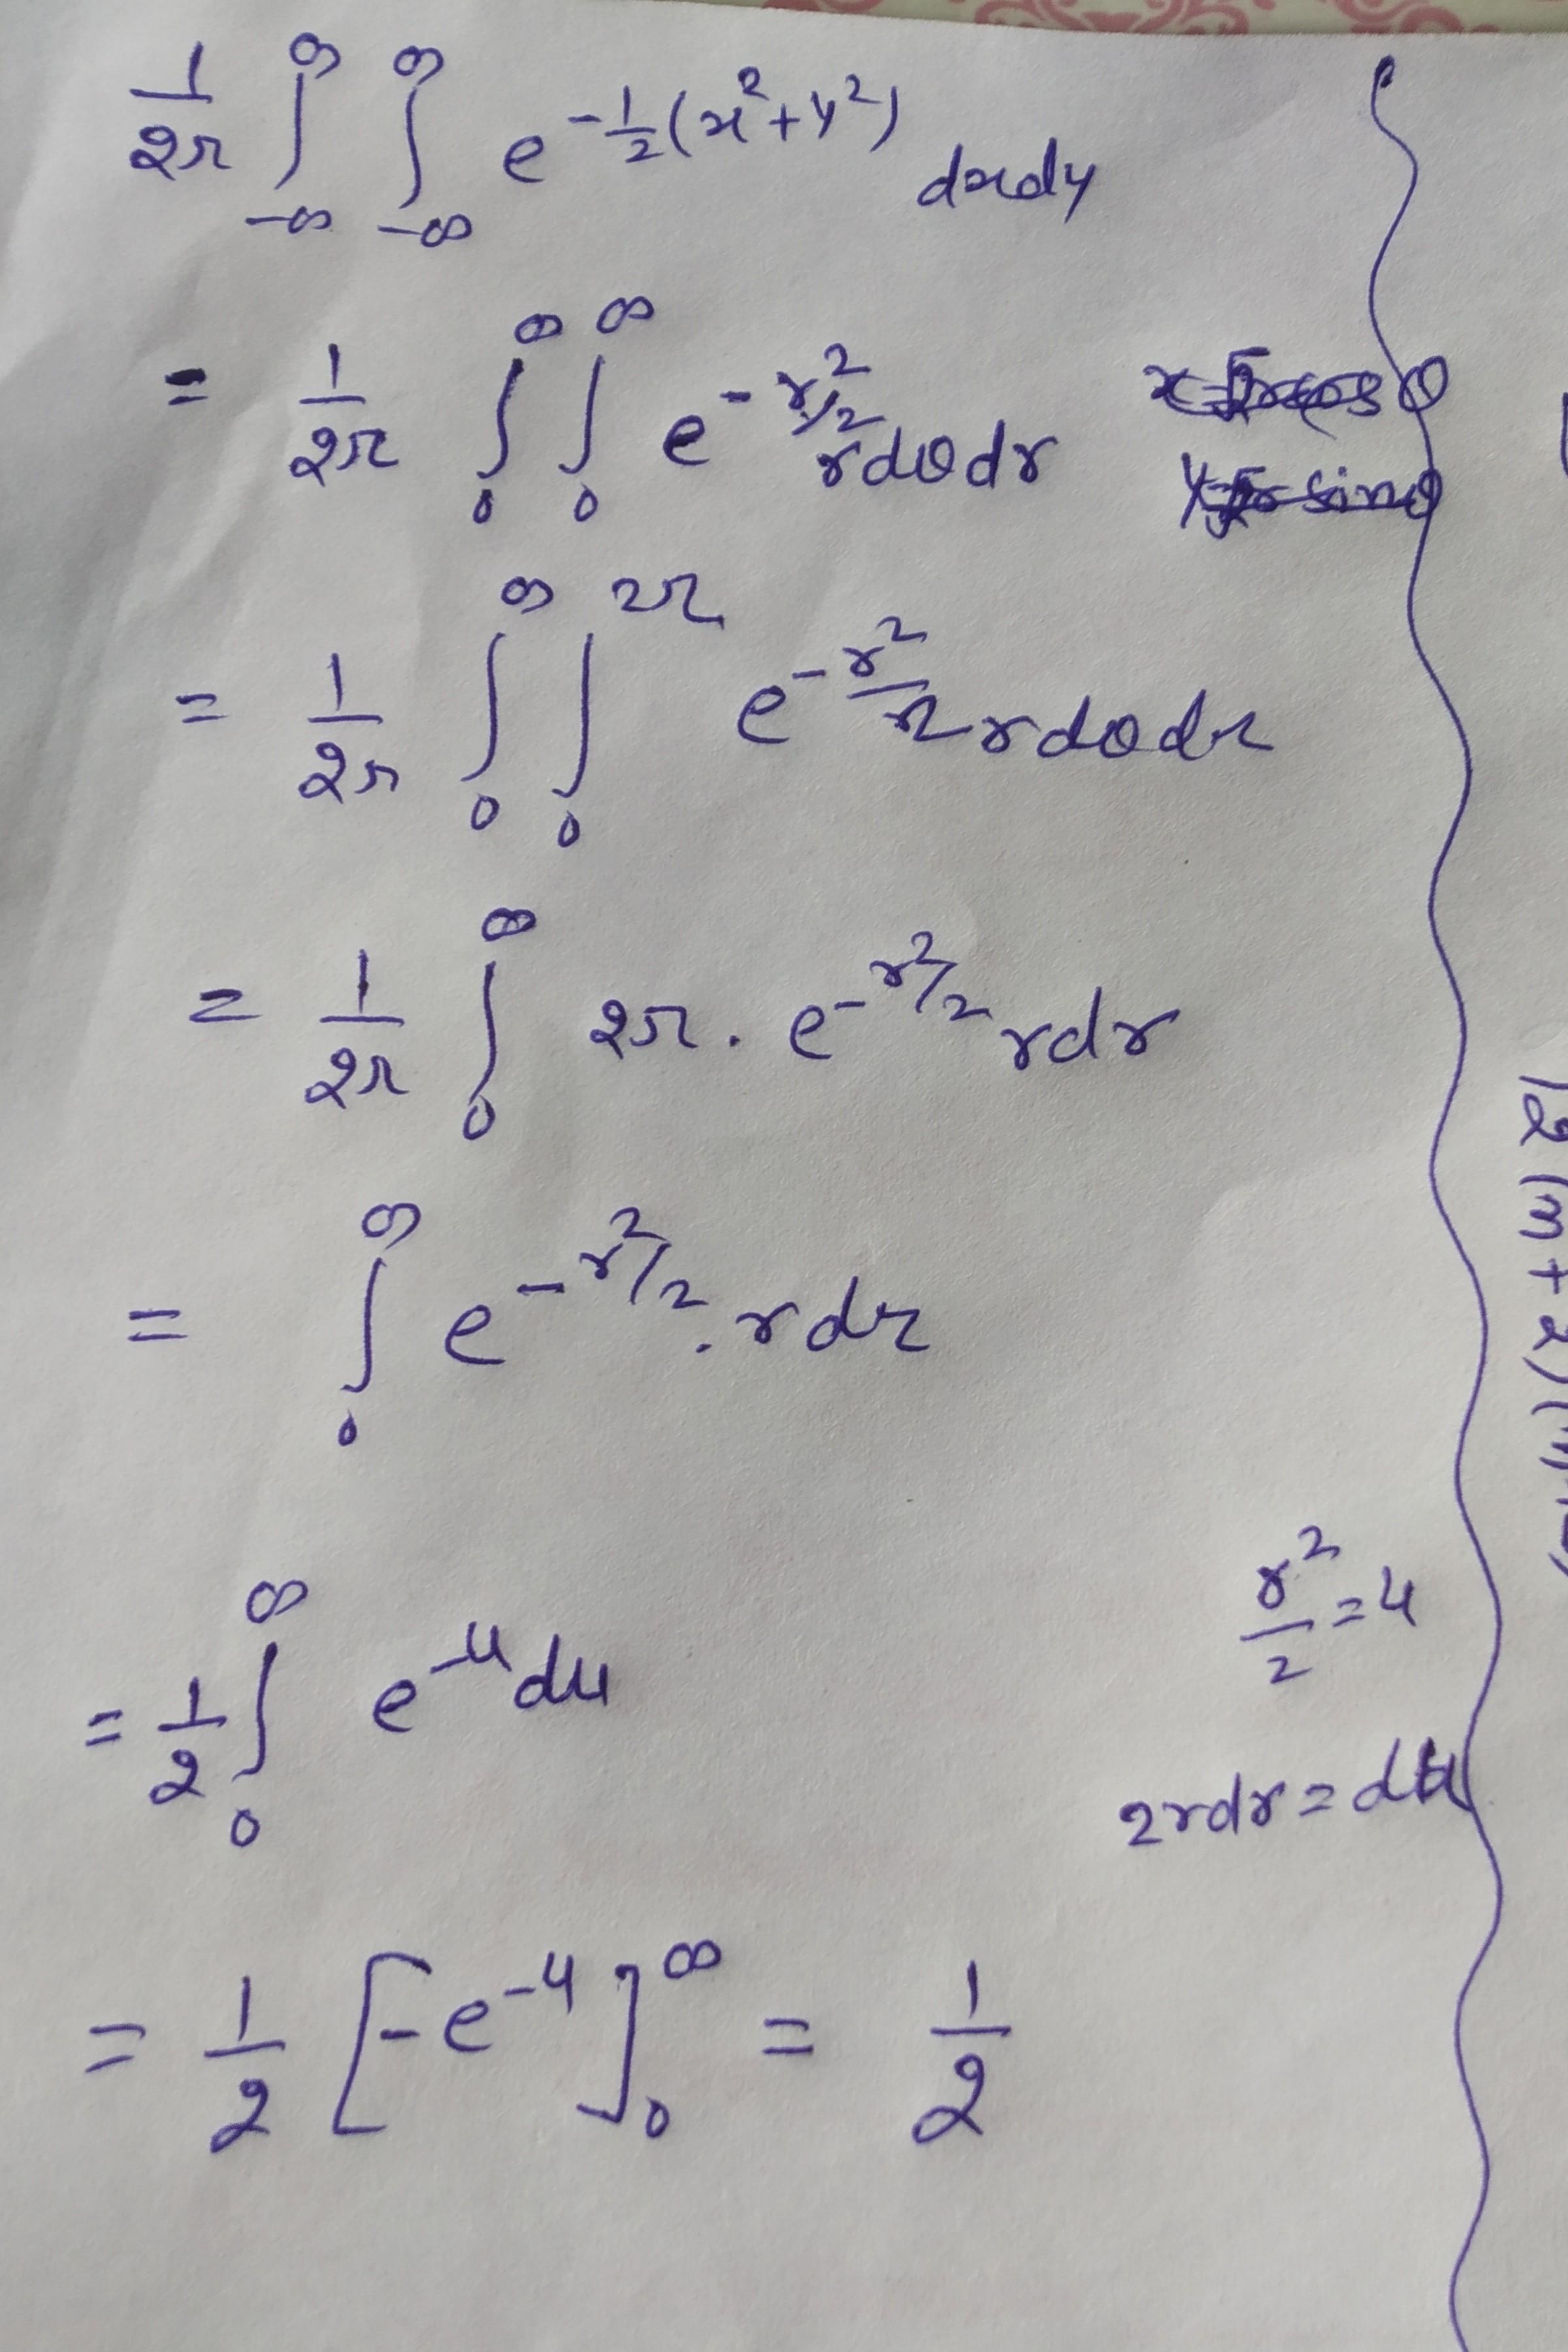 1/2π ∫_{-∞}^{∞} ∫_{-∞}^{∞} e^{-1/2(x²+y²)} dxdy
= 1/2π ∫_0^∞ ∫_0^∞ e^{-r²/2} rdθdr
= 1/2π ∫_0^∞ ∫_0^{2π} e^{-r²/2} rdθdr
= 1/2π ∫_0^∞ 2π. e^{-r²/2} rdr
= ∫_0^∞ e^{-r²/2}. rdr
r²/2 = u
= 1/2 ∫_0^∞ e^{-u} du
2rdr = du
= 1/2 [-e^{-u}]_0^∞ = 1/2